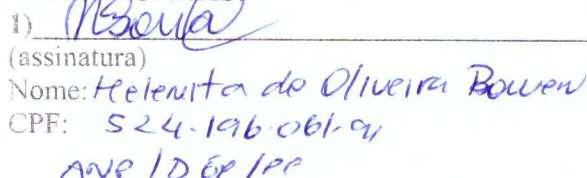 1)
(assinatura)
Nome: Helenita de Oliveira Bowen
CPF: 524.196.061-91